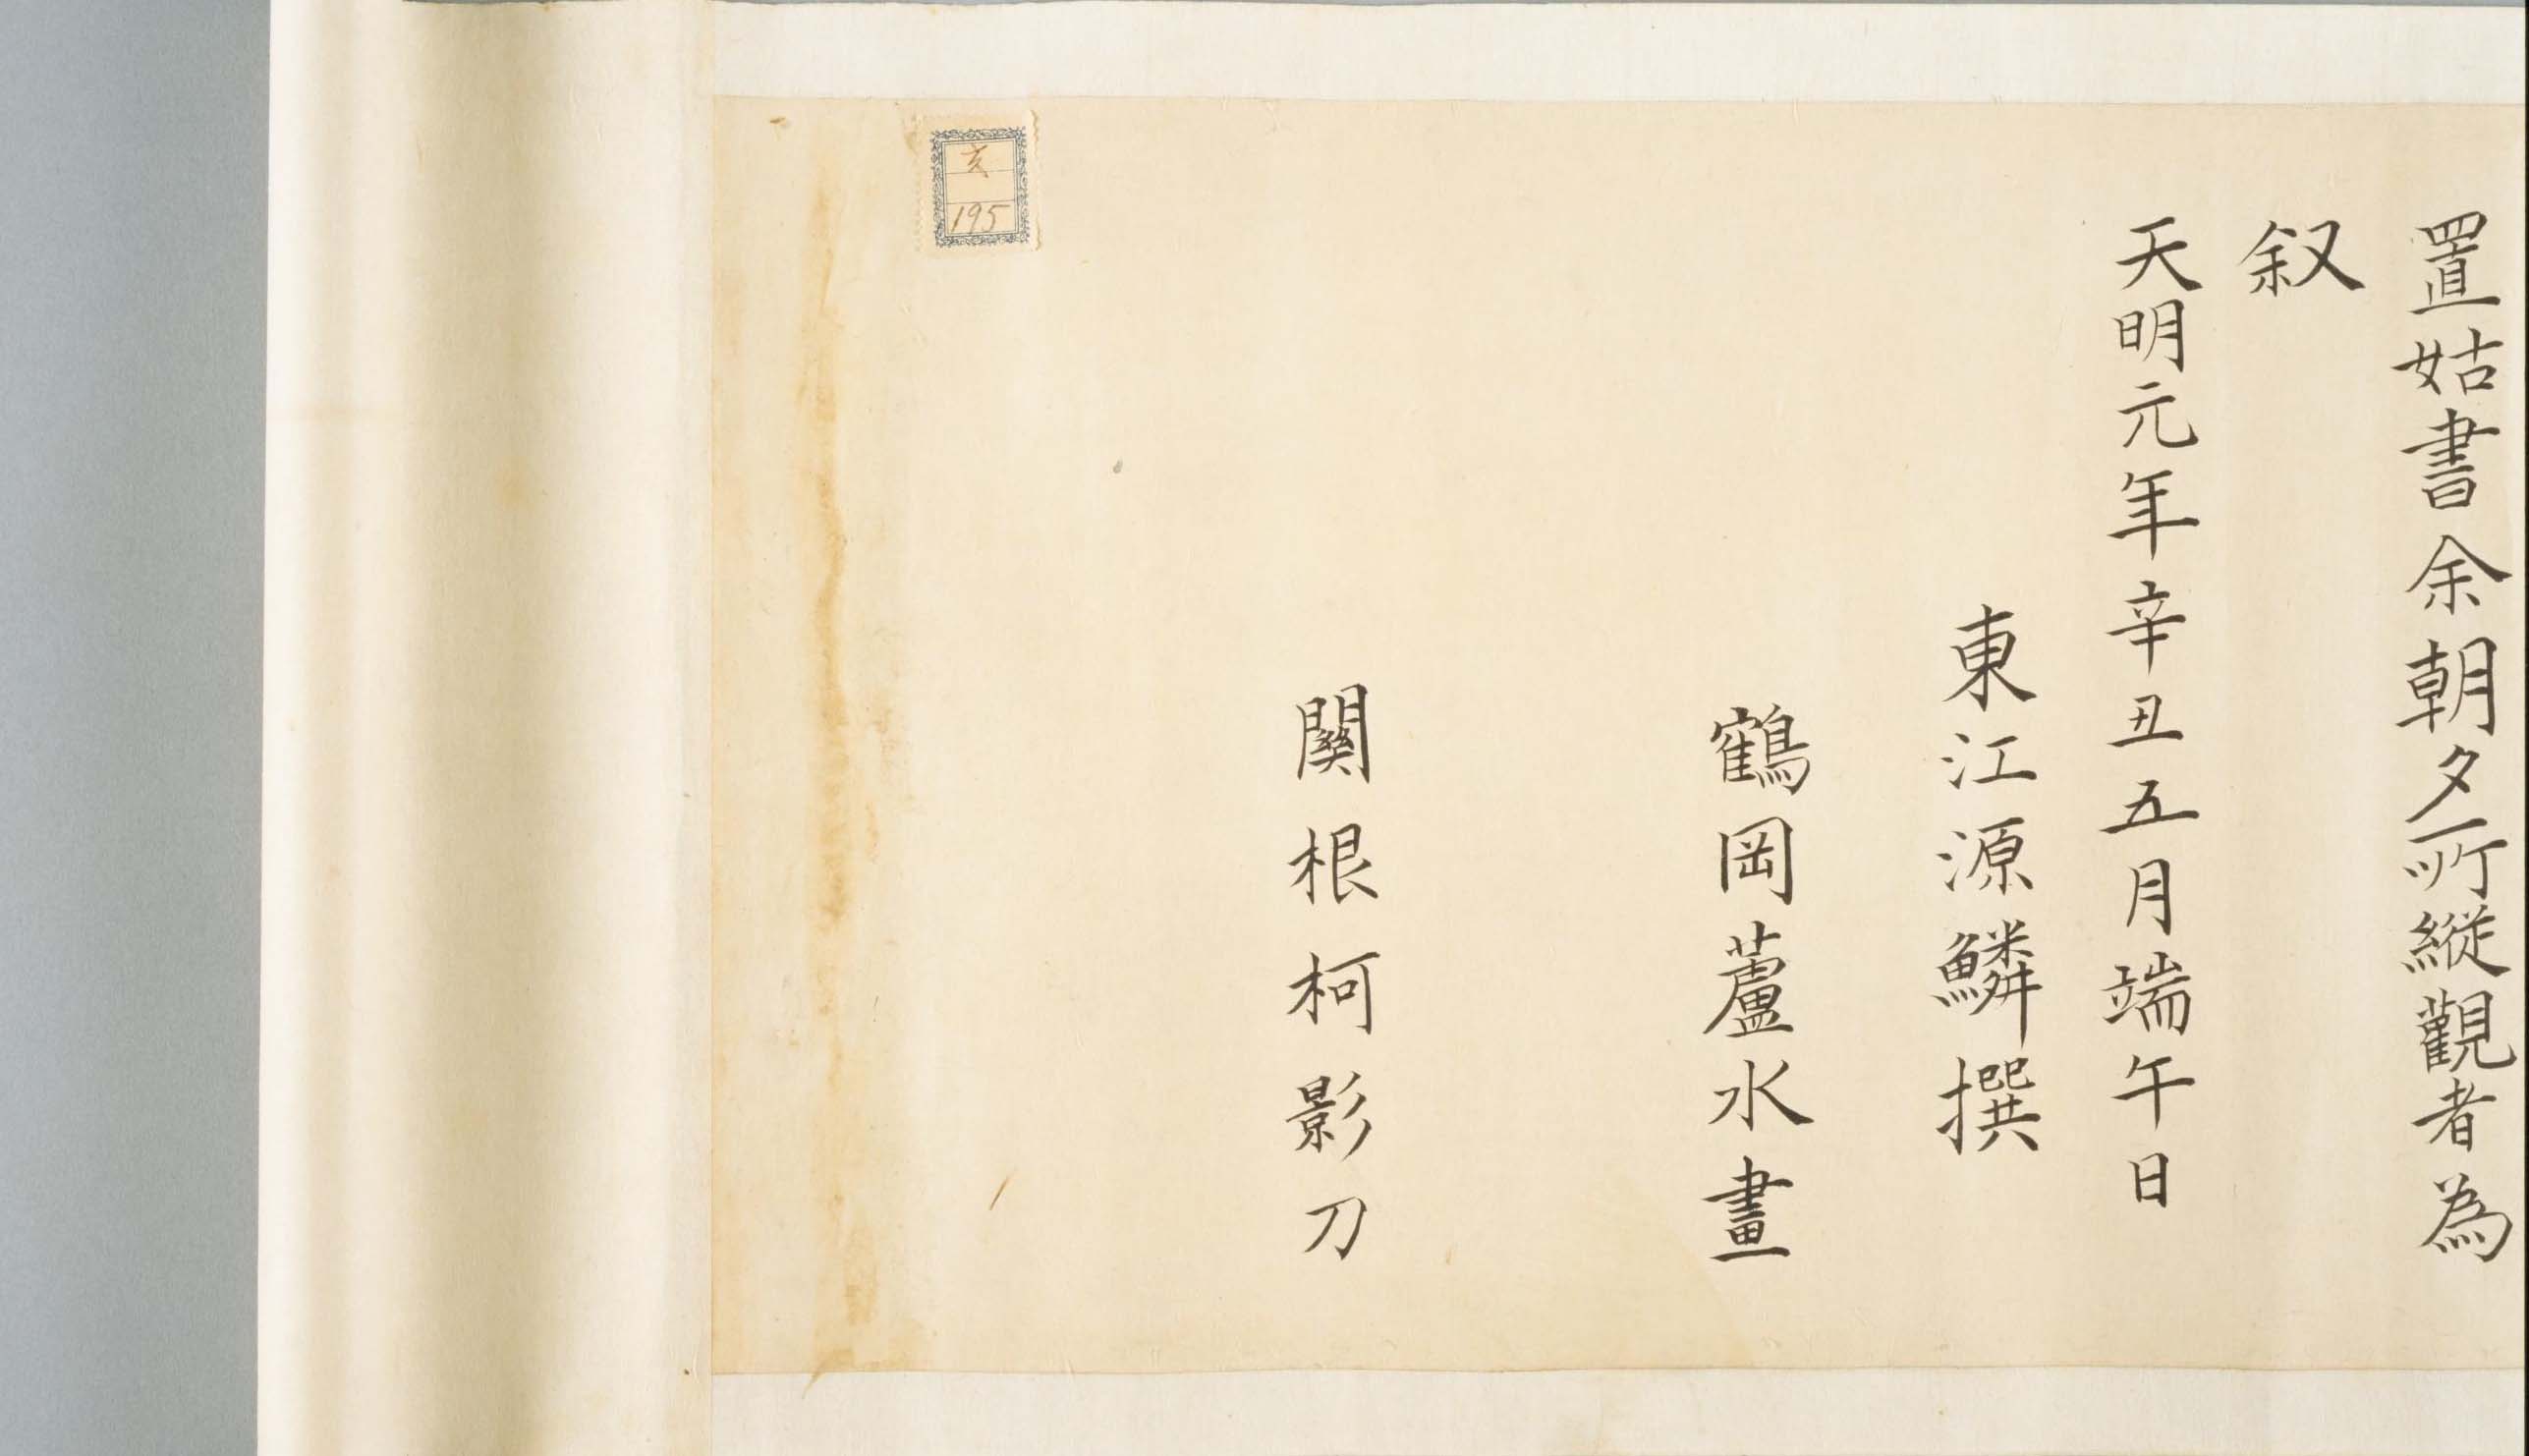 置姑書余朝夕所縱觀者為
叙
天明元年辛丑五月端午日
東江源鱗撰
鶴岡蘆水畫
關根柯影刀
亥
195